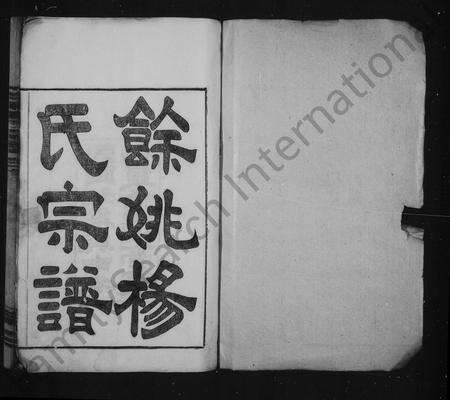 餘姚楊
氏宗譜
FamilySearch International